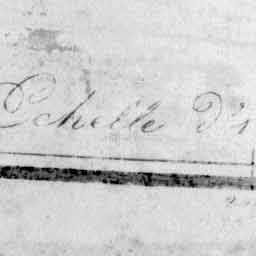 Echelle D'